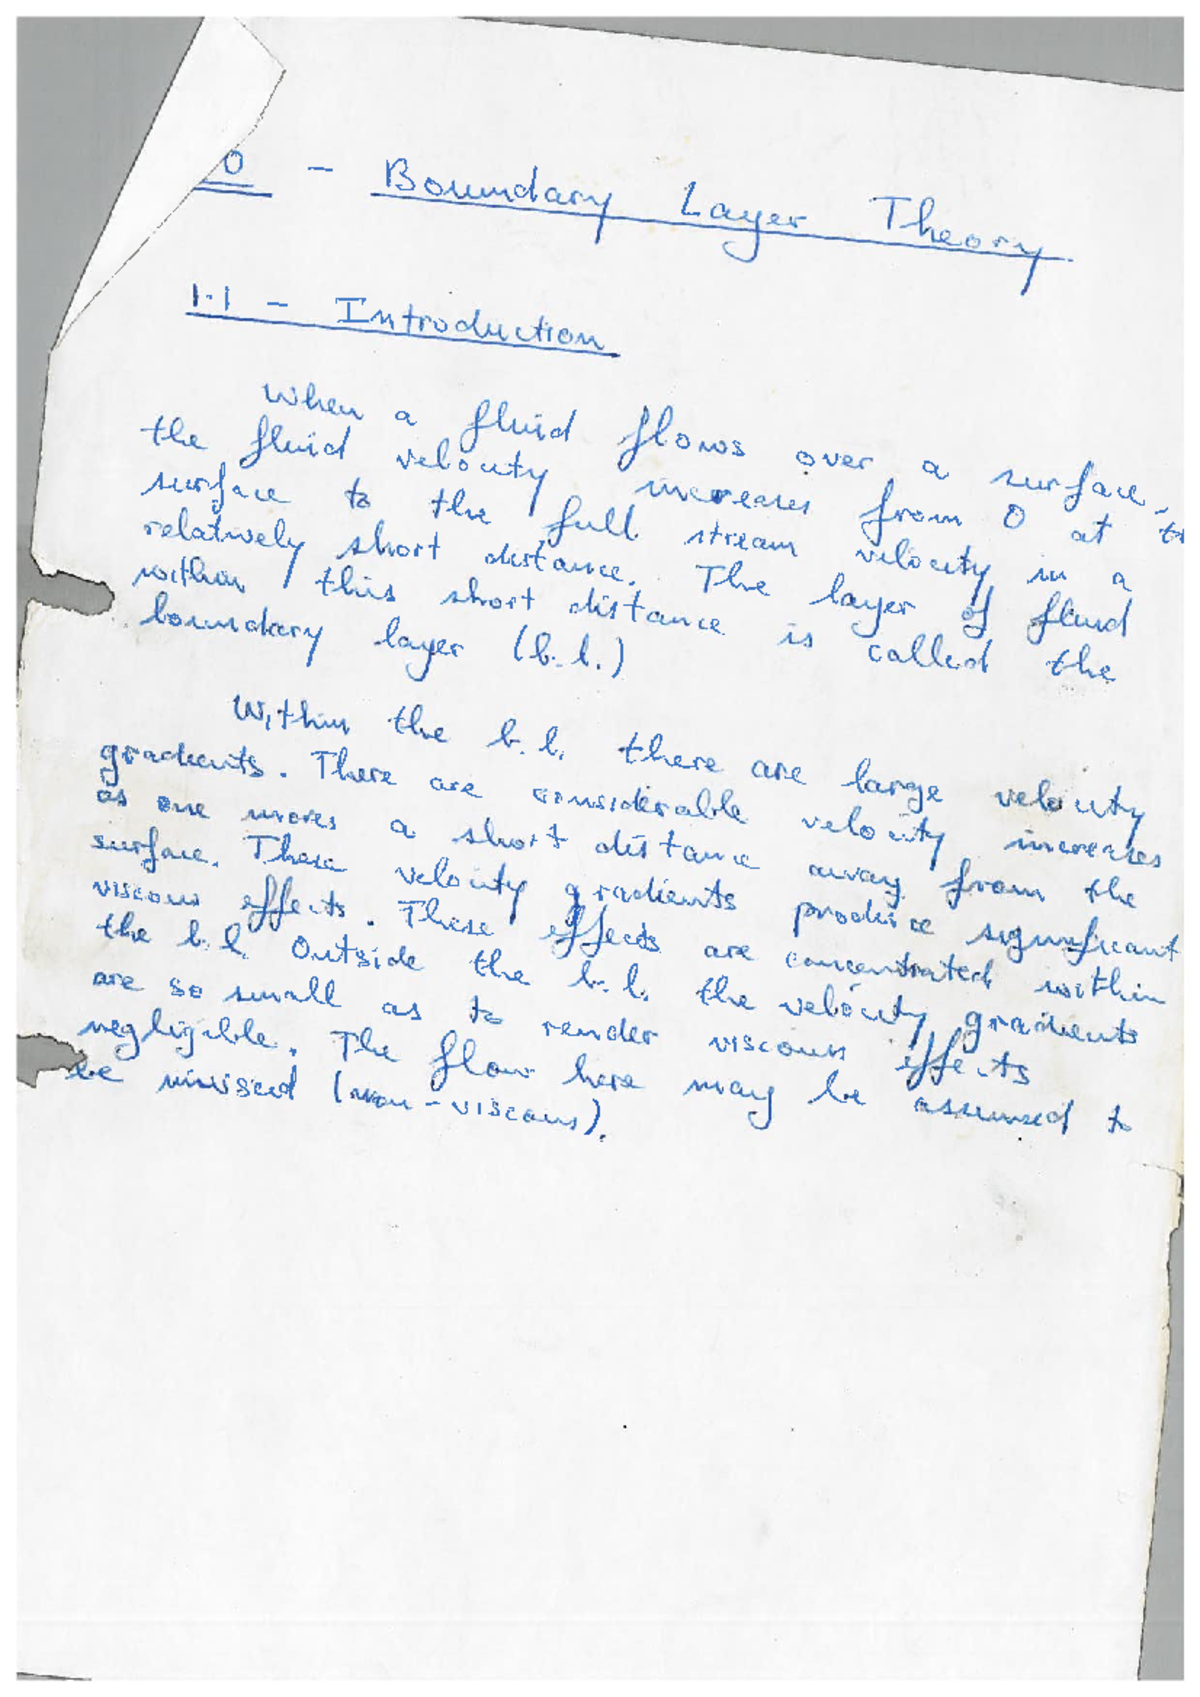 0 - Boundary Layer Theory
1.1 - Introduction
When a fluid flows over a surface,
the fluid velocity increases from 0 at
surface to the full stream velocity in a
relatively short distance. The layer of fluid
within this short distance is called the
boundary layer (b.l.)
Within the b.l. there are large velocity
gradients. There are considerable velocity increases
as one moves a short distance away from the
surface. These velocity gradients produce significant
viscous effects. These effects are concentrated within
the b.l. Outside the b.l. the velocity gradients
are so small as to render viscous effects
negligible. The flow here may be assumed to
be inviscid (non-viscous).